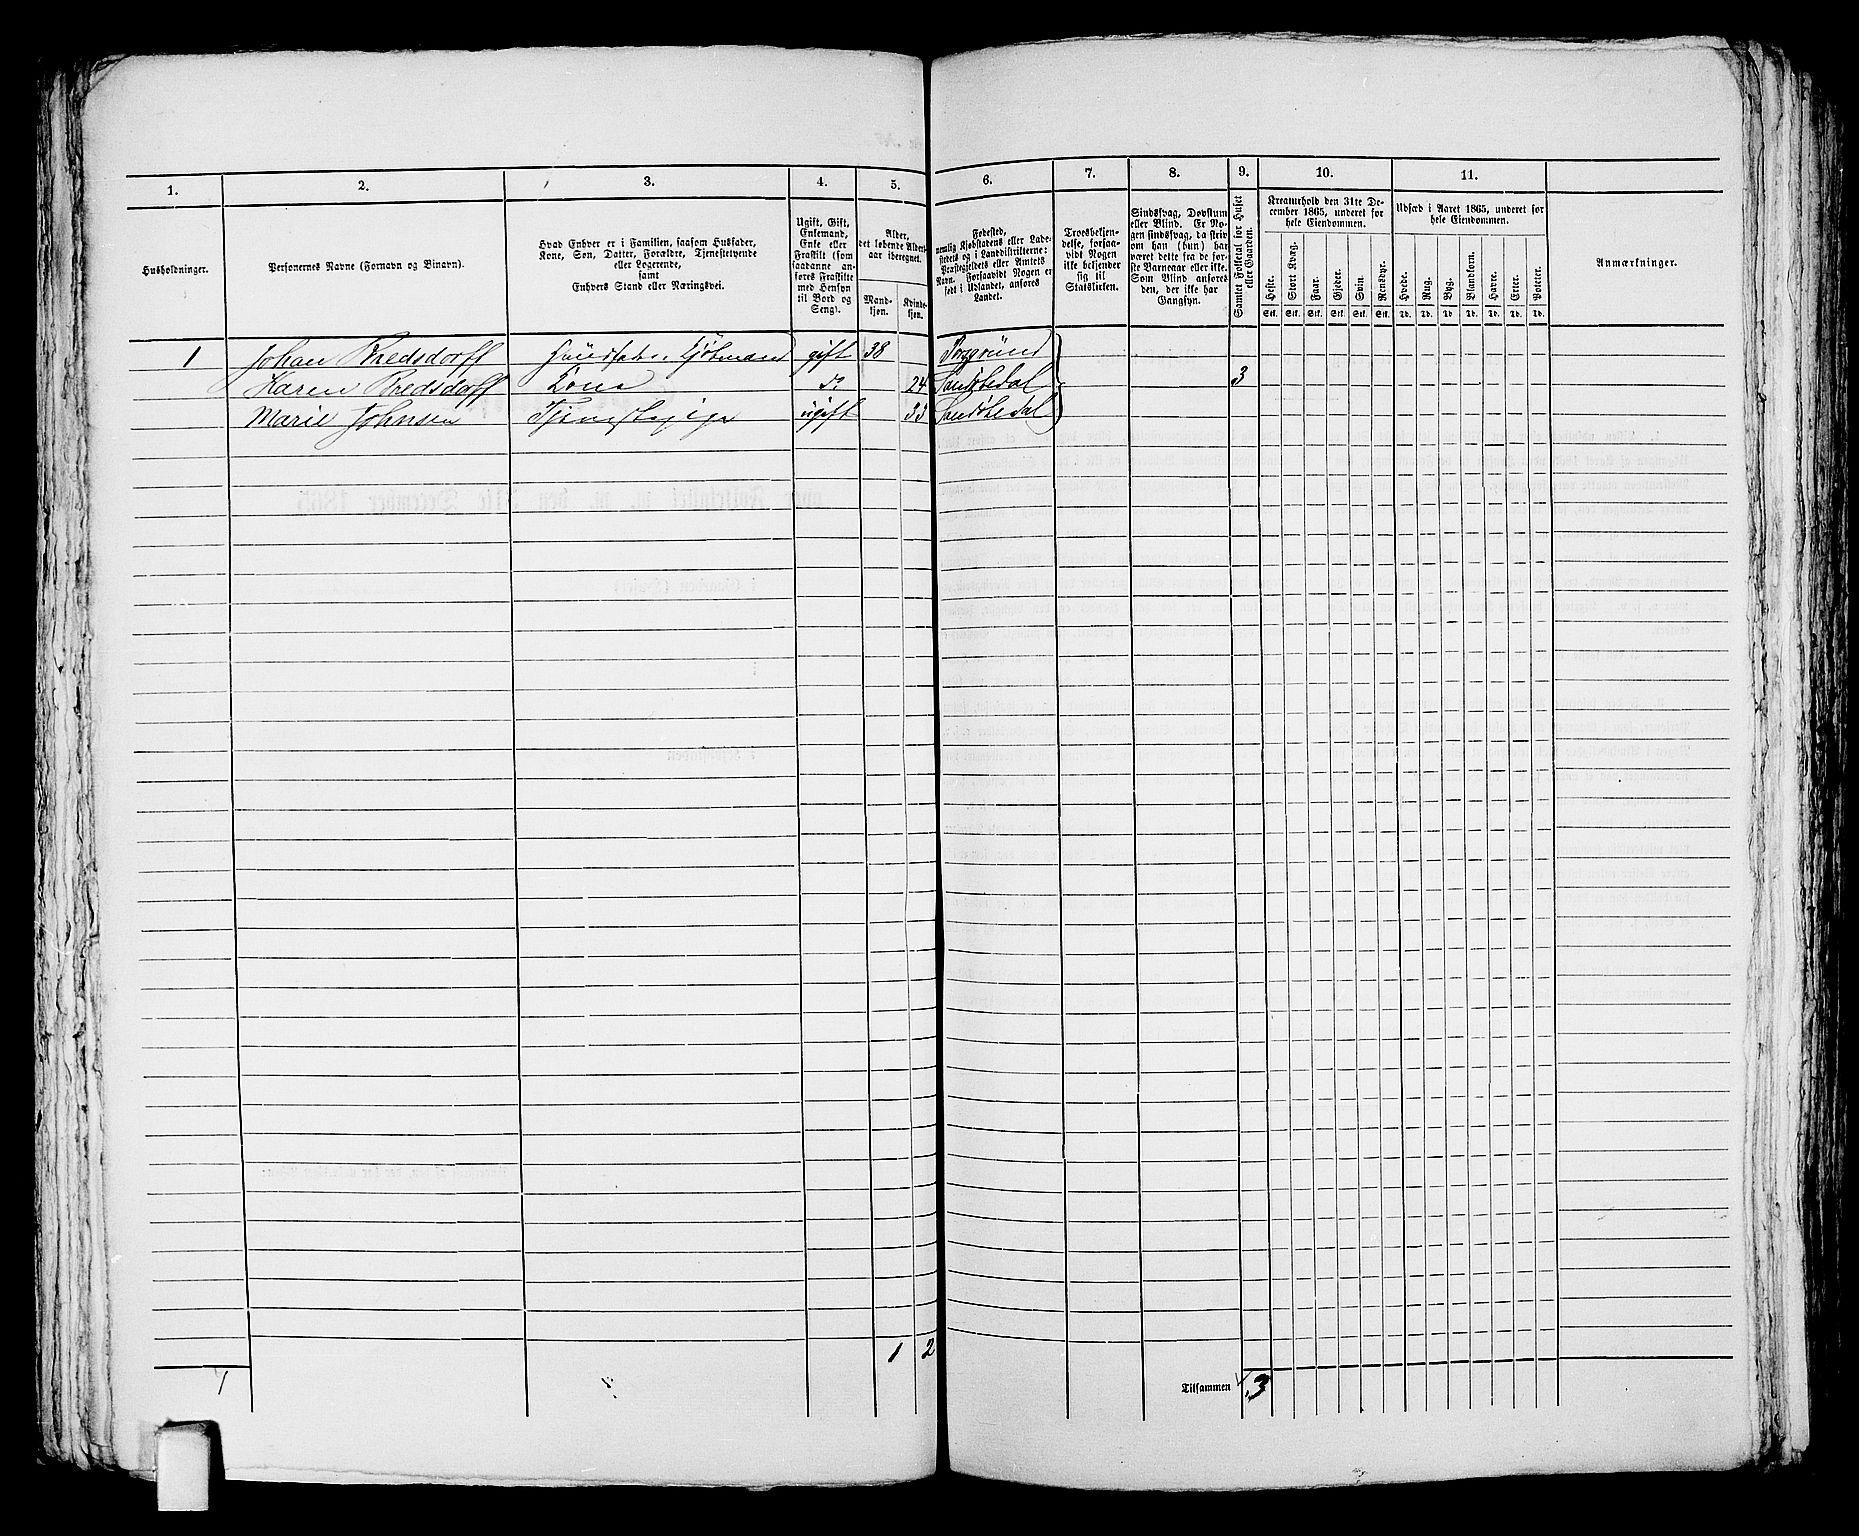 1. 2. 3. 4. 5. 6. 7. 8. 9. 10. 11.
Husholdninger.
Personernes Navne (Fornavn og Binavn).
Hvad Enhver er i Familien, saasom Husfader,
Kone, Søn, Datter, Forældre, Tjenestetyende
eller Logerende,
samt
Enhvers Stand eller Næringsvei.
Ugift, Gift,
Enkemand,
Enke eller
Fraskilt (som
saadanne an-
føres Fraskilte
med Hensyn
til Bord og
Seng).
Alder,
det løbende Alders-
aar iberegnet.
Mand-
kjøn.
Kvinde-
kjøn.
Fødested,
nemlig Kjøbstadens eller Lade-
stedets og i Landdistrikterne:
Præstegjeldets eller Amtets
Navn. Forsaavidt Nogen er
født i Udlandet, anføres
Landet.
Troesbekjen-
delse, forsaa-
vidt Nogen
ikke bekjender
sig til
Statskirken.
Sindssvag, Døvstum
eller Blind. Er No-
gen sindssvag, da skriv
om han (hun) har
været dette fra de før-
ste Barneaar eller ikke.
Som Blind anføres
den, der ikke har
Gangsyn.
Samlet Folketal for Huset
eller Gaarden.
Kreaturhold den 31te De-
cember 1865, underet for
hele Eiendommen.
Heste. Stort Kvæg. Faar. Gjeder. Svin Rensdyr.
Stk. Stk. Stk. Stk. Stk. Stk.
Udsæd i Aaret 1865, underet for
hele Eiendommen.
Hvede. Rug. Byg. Blandkorn. Havre. Erter. Poteter.
Td. Td. Td. Td. Td. Td. Td.
Anmærkninger.
1 Johan Bredsdorff Huusfader, Kjøbmand gift 38 Porsgrund
Karen Bredsdorff Kone do 24 Sandøkedal 3
Marie Johnsen Tjenestepige ugift 33 Sandøkedal
1 2
1 Tilsammen 3